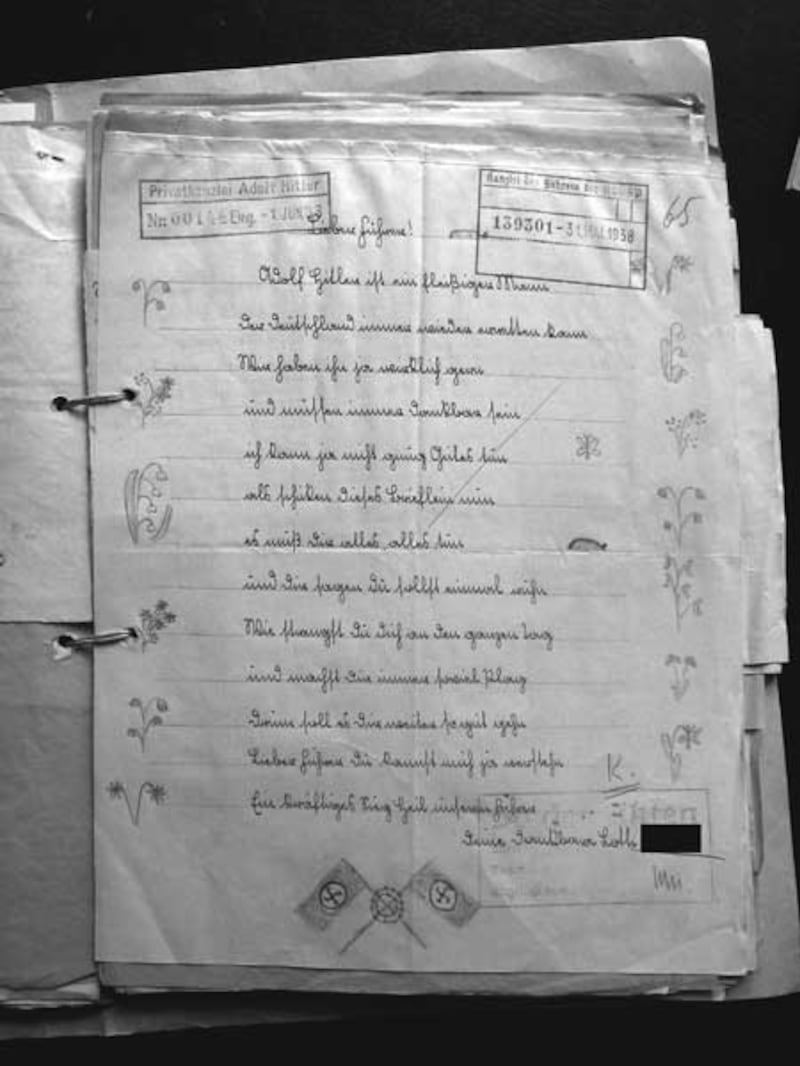 Privatkanzlei Adolf Hitler
Kanzlei des Führers der NSDAP
65
Nr: 00142 Eng. -1.JUN.38
139301-31.MAI.1938
Lieber Führer!
Adolf Hitler ist ein fleißiger Mann
Der Deutschland immer wieder erretten kann
Wir haben ihn ja wirklich gern
und müssen immer dankbar sein
ich kann ja nicht genug Gutes tun
als schicken dieses Brieflein nun
es muß Dir alles, alles tun
und Dir sagen Du sollst einmal ruhn
Wie strengst Du Dich an den ganzen Tag
und machst Dir immer soviel Plag
Drum soll es Dir weiter so gut gehn
Lieber Führer Du kannst mich ja verstehn
K.
Ein kräftiges Sieg Heil unserem Führer
Deine dankbare Lotte